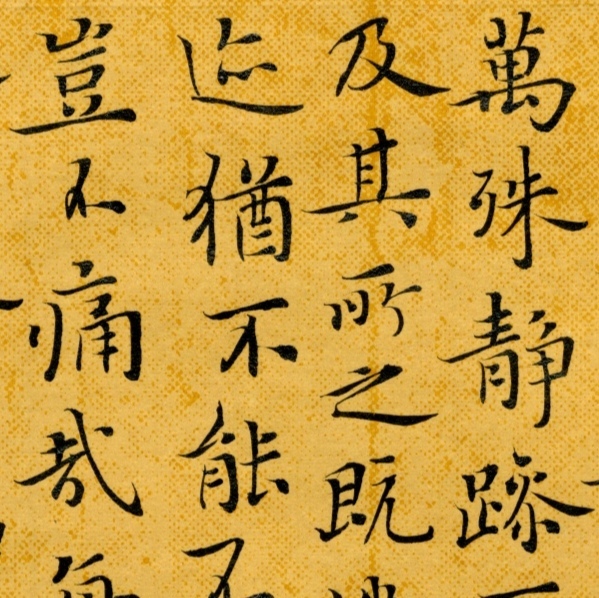 萬殊靜躁不
及其所之既
迹猶不能不
豈不痛哉每